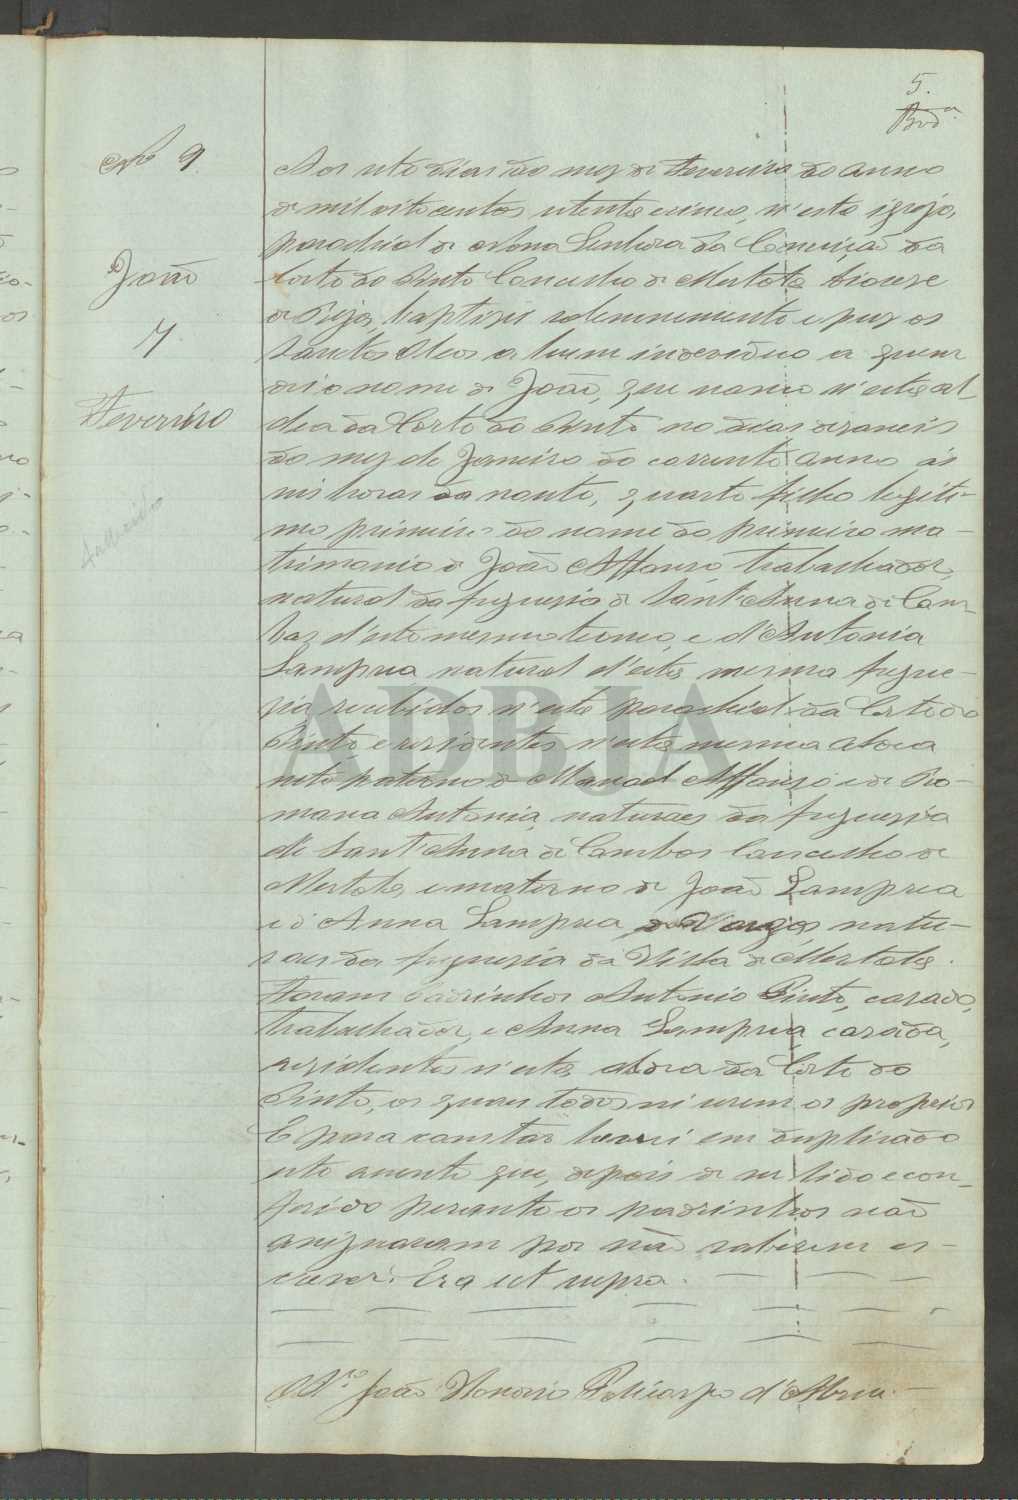 5.
N.º 9.
João
7
Fevereiro
Aos sete dias do mez de Fevereiro do anno
de mil oitocentos oitenta e cinco, n'esta igreja
parochial de Nossa Senhora da Conceição da
Corte do Pinto Concelho de Mertola Diocese
de Beja, baptizei solemnemente e puz os
Sanctos Oleos a hum individuo a quem
dei o nome de João, que nasceu n'esta al-
dea da Corte do Pinto no dia dezaneis
do mez de Janeiro do corrente anno ás
seis horas da noute, quarto filho legiti-
mo primeiro do nome do primeiro ma-
trimonio de João Affonso, trabalhador,
natural da freguesia de Sant'Anna de Cam-
bas d'este mesmo termo, e d'Antonia
Lampreia natural d'esta mesma fregue-
zia recebidos n'esta parochial da Corte do
Pinto, e residentes n'esta mesma aldea
neto paterno de Manoel Affonso e de Ro-
mana Antonia, naturaes da freguesia
de Sant'Anna de Cambas Concelho de
Mertola, e materno de João Lampreia
e d'Anna Lampreia, natu-
raes da freguesia da Villa de Mertola.
Foram Padrinhos Antonio Pinto, casado,
trabalhador, e Anna Lampreia, casada,
residentes n'esta aldea da Corte do
Pinto, os quaes todos sei serem os proprios
E para constar lavrei em duplicado
este assento que, depois de ser lido e con-
ferido perante os padrinhos não
assignaram por não saberem es-
crever. Era ut supra.
João Honorio Policarpo d'Abreu
ADBJA